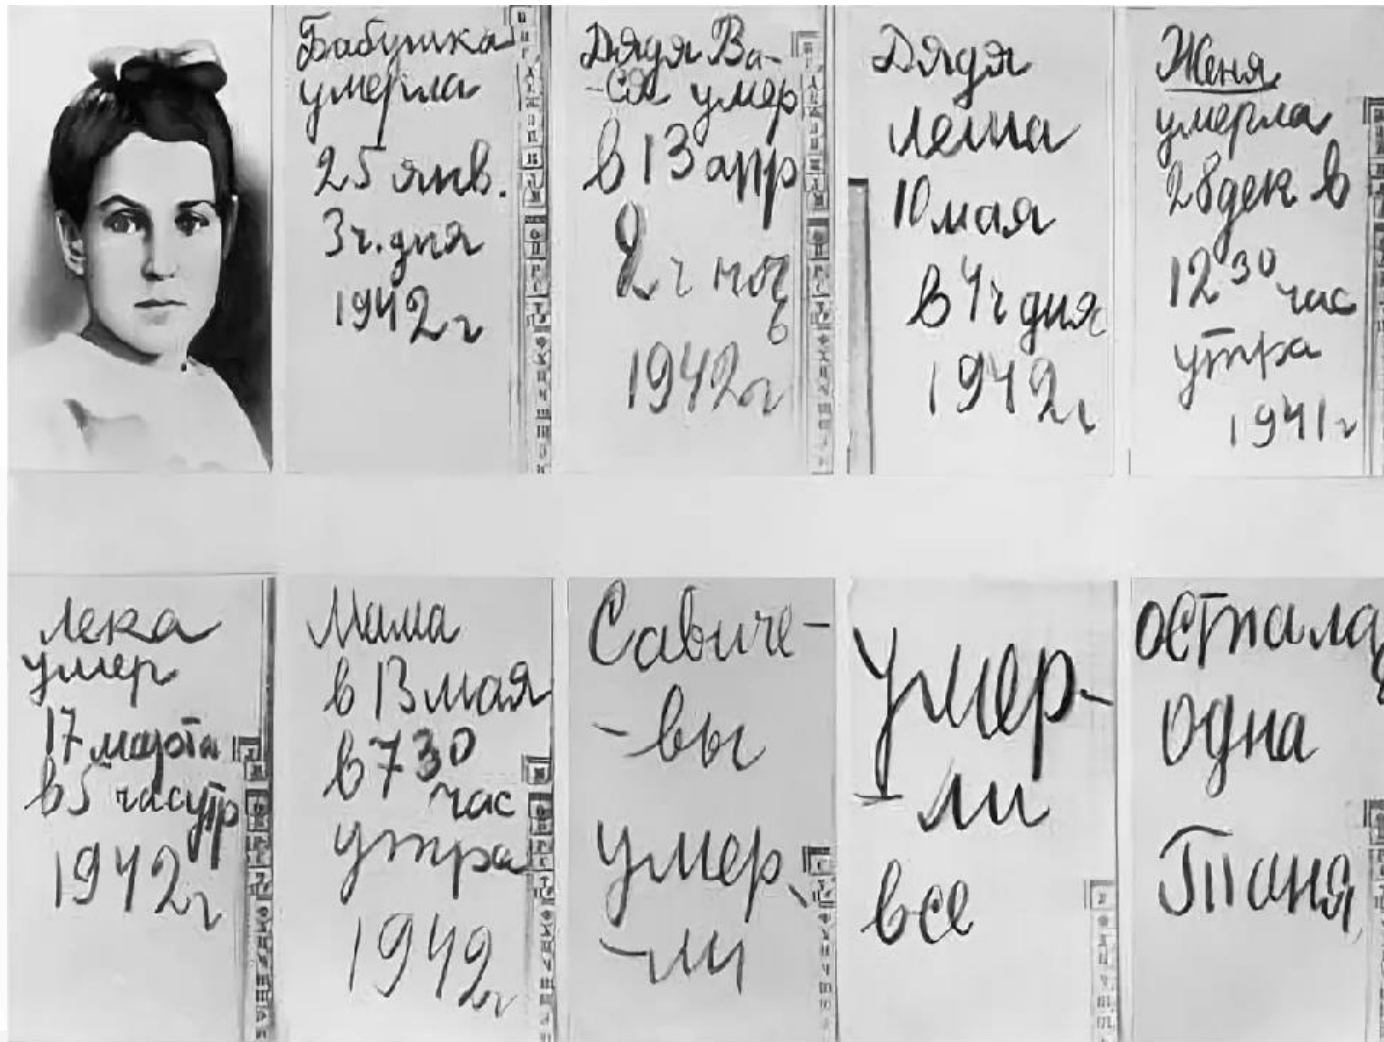 Бабушка
умерла
25 янв.
3ч. дня
1942 г
Дядя Ва-
-ся умер
в 13 апр
2ч ноч
ь
1942 г
Дядя
Леша
10 мая
в 4ч дня
1942 г
Женя
умерла
28 дек в
12 30 час
утра
1941 г
Лека
умер
17 марта
в 5 час утр
1942 г
Мама
в 13 мая
в 7 30
час
утра
1942 г
Савиче-
-вы
умер
-ли
Умер-
-ли
все
Осталась
одна
Таня